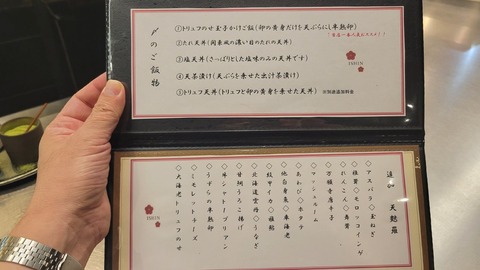 〆のご飯物
①トリュフのせ玉子かけご飯(卵の黄身だけを天ぷらにし半熟卵)
「当店一番人気オススメ!」
②たれ天丼(関東風の濃い目のたれの天丼)
③塩天丼(さっぱりとした塩味のみの天丼です)
④天茶漬け(天ぷらを乗せた出汁茶漬け)
⑤トリュフ天丼(トリュフと卵の黄身を乗せた天丼)
※別途追加料金
ISHIN
追加 天麩羅
◇アスパラ ◇玉ねぎ
◇椎茸 ◇モロッコインゲ
◇れんこん ◇舞茸
◇万願寺唐辛子
◇マッシュルーム
◇あわび ◇ホタテ
◇他白身魚 ◇車海老
◇紋甲イカ ◇稚鮎
◇北海道雲丹 ◇うなぎ
◇甘鯛うろこ揚げ
◇牛シャトーブリアン
◇うずらの半熟卵
◇ミモレットチーズ
◇大海老トリュフのせ
ISHIN